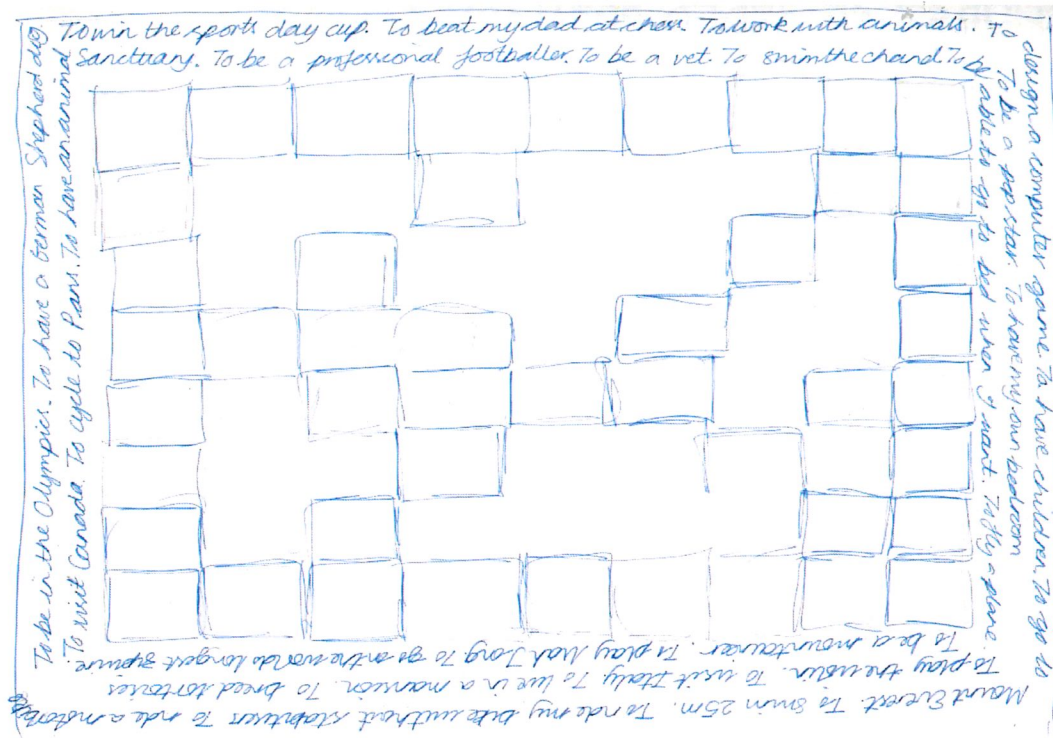 To win the sports day cup. To beat my dad at chess. To work with animals. To
design a computer game. To have children. To go to
Mount Everest. To swim 25m. To ride my bike without stabilisers To ride a motorbike
To be in the Olympics. To have a German Shepherd dog
Sanctuary. To be a professional footballer. To be a vet. To swim the chanel To
be able to go to bed when I want. To fly a plane.
To be a popstar. To have my own bedroom
To play the violin. To visit Italy To live in a mansion. To breed tortoises
To be a mountaineer. To play Mah Jong To go on the worlds longest zipwire.
To visit Canada. To cycle to Paris. To have an animal